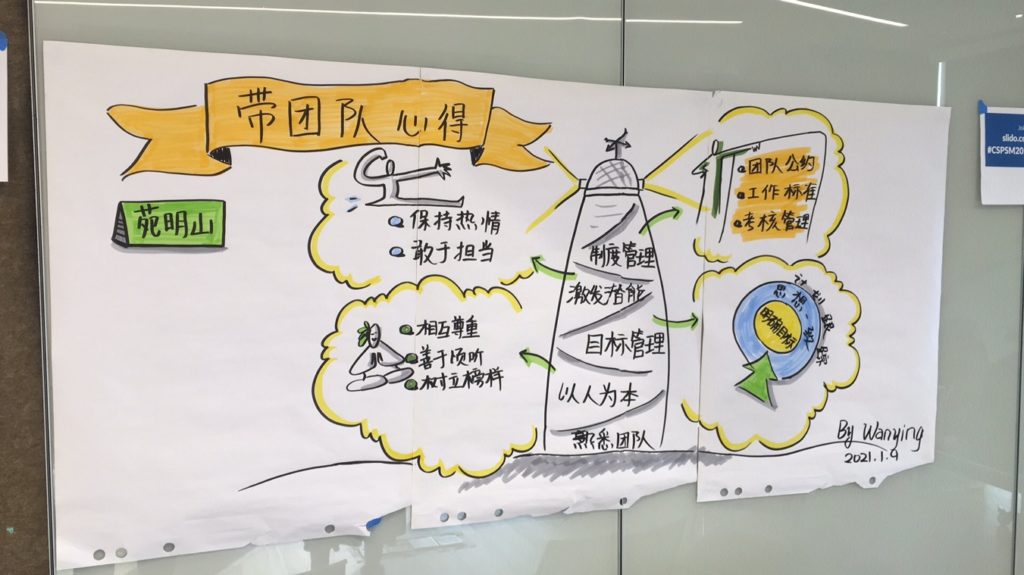 带团队心得
苑明山
保持热情
敢于担当
相互尊重
善于倾听
树立榜样
制度管理
激发潜能
目标管理
以人为本
熟悉团队
团队公约
工作标准
考核管理
计划跟踪
思想一致
明确目标
By Wanying
2021.1.9
slido.co
#CSPSM20